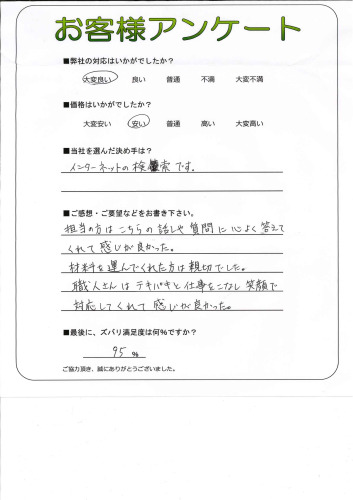 お客様アンケート
■弊社の対応はいかがでしたか？
大変良い 良い 普通 不満 大変不満
■価格はいかがでしたか？
大変安い 安い 普通 高い 大変高い
■当社を選んだ決め手は？
インターネットの検索です。
■ご感想・ご要望などをお書き下さい。
担当の方はこちらの話しや質問に心よく答えて
くれて感じが良かった。
材料を運んでくれた方は親切でした。
職人さんはテキパキと仕事をこなし笑顔で
対応してくれて感じが良かった。
■最後に、ズバリ満足度は何%ですか？
95 %
ご協力頂き、誠にありがとうございました。